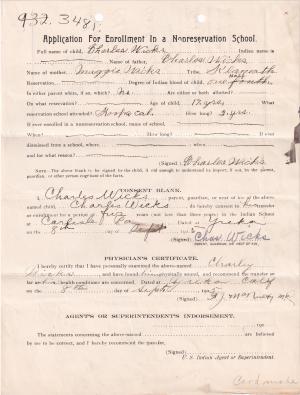 932. 348.
Application For Enrollment in a Nonreservation School.
Full name of child, Charles Wicks Indian name is
Name of father, Charles Wicks
Name of mother, Maggie Wicks Tribe, Klamath
Reservation, Degree of Indian blood of child, One
Is either parent white, if so, which? No Are either or both allotted?
On what reservation? Age of child, 17 yrs.
reservation school attended? How long? 3 yrs.
If ever enrolled in a nonreservation school, name of school,
When? How long? If ever
dismissed from a school, where, when,
and for what reason?
(Signed) Charles Wicks
NOTE.—The above blank to be signed by the child, if old enough to understand its import, if not, by the parent, guardian,
or other person cognizant of the facts.
CONSENT BLANK.
I, Charles Wicks, parent, guardian, or next of kin of the above-
named child, Charles Wicks do hereby consent to his transfer
or enrollment for a period of five years (not less than three years) in the Indian School
at Carlisle Pa Dated at Yreka
8th
(Signed) Chas. Wicks
PHYSICIAN'S CERTIFICATE.
I hereby certify that I have personally examined the above-named Charley
Wicks and have found him physically sound, and recommend the transfer so
far as health conditions are concerned. Dated at Yreka Calif
on the 8th day of Sept
(Signed)
AGENT'S OR SUPERINTENDENT'S INDORSEMENT.
The statements concerning the above-named are believed
by me to be correct, and I hereby recommend the transfer.
(Signed)
U. S. Indian Agent or Superintendent.
Card made